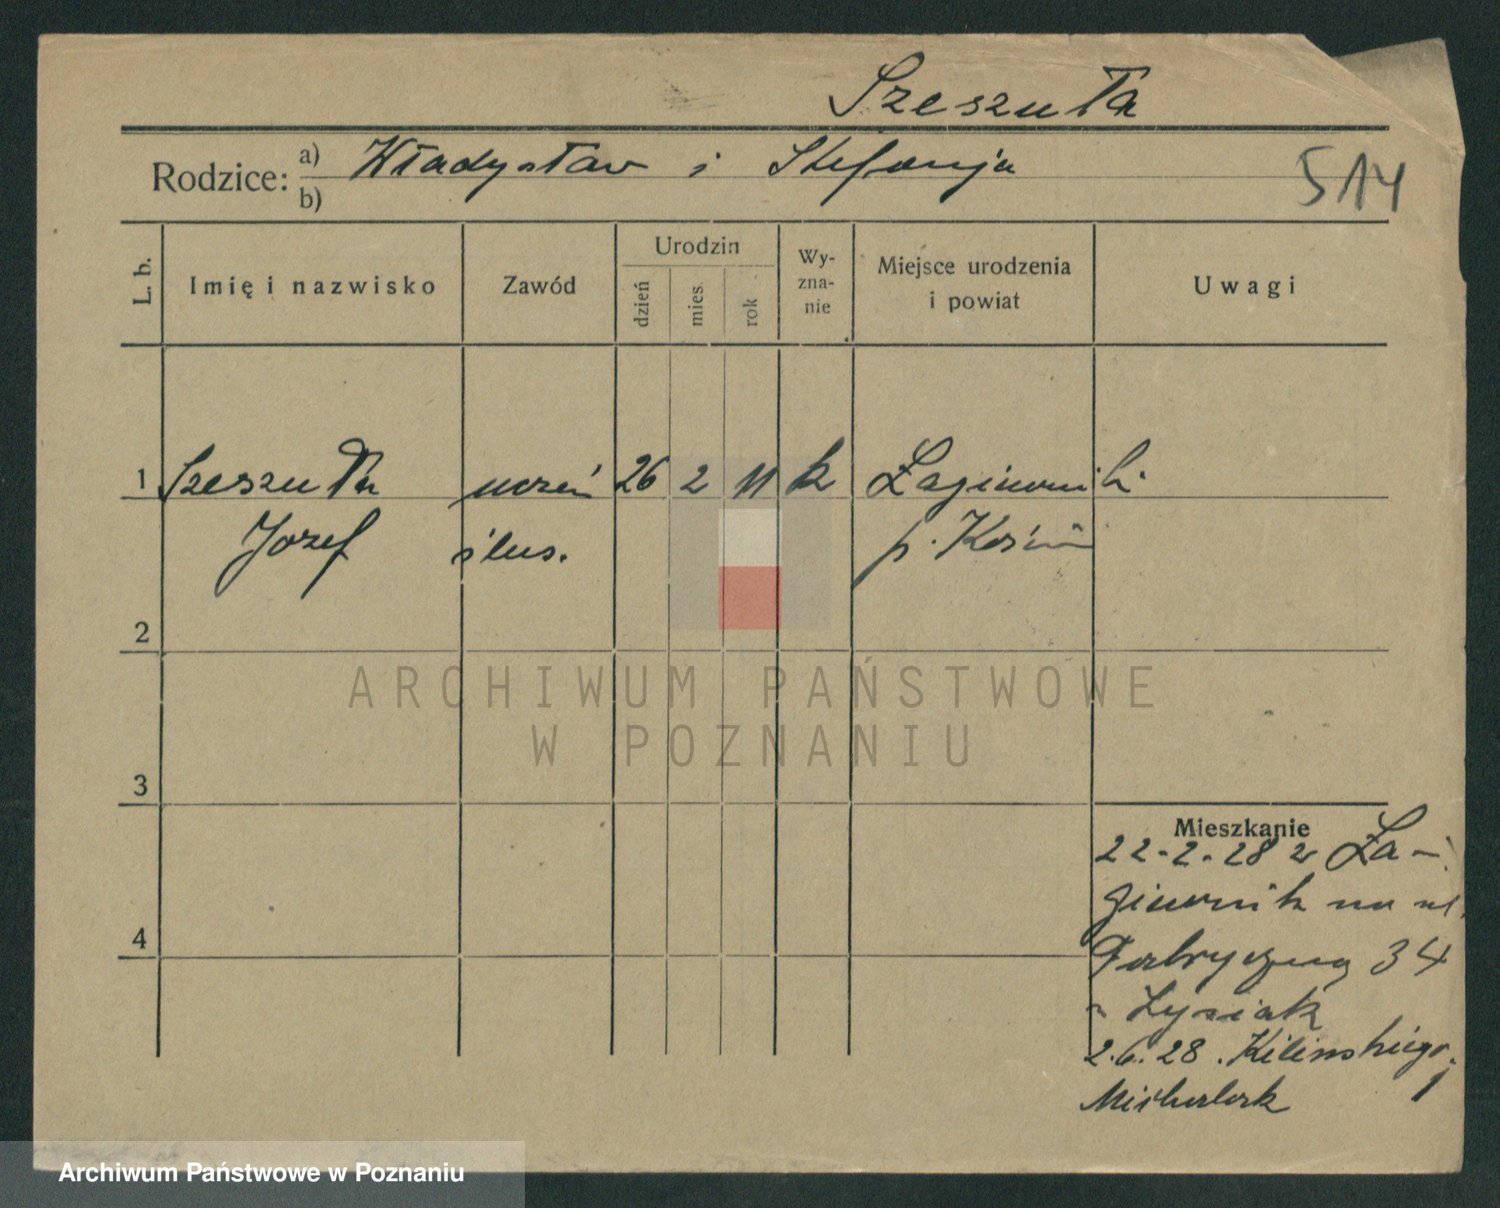 Szeszuła
Rodzice:
a) Władysław i Stefanja
b)
514
L. b.
Imię i nazwisko
Zawód
Urodzin
dzień
mies.
rok
Wy-
zna-
nie
Miejsce urodzenia
i powiat
Uwagi
1 Szeszuła uczeń 26 2 11 k Łagiewniki
Józef ślus. p. Kośmin
2
3
4
Mieszkanie
22-2-28 z Ła-
giewnik na ul.
Fabryczną 34
Łysiak
2.6.28. Kilińskiego
1
ARCHIWUM PAŃSTWOWE
W POZNANIU
Archiwum Państwowe w Poznaniu